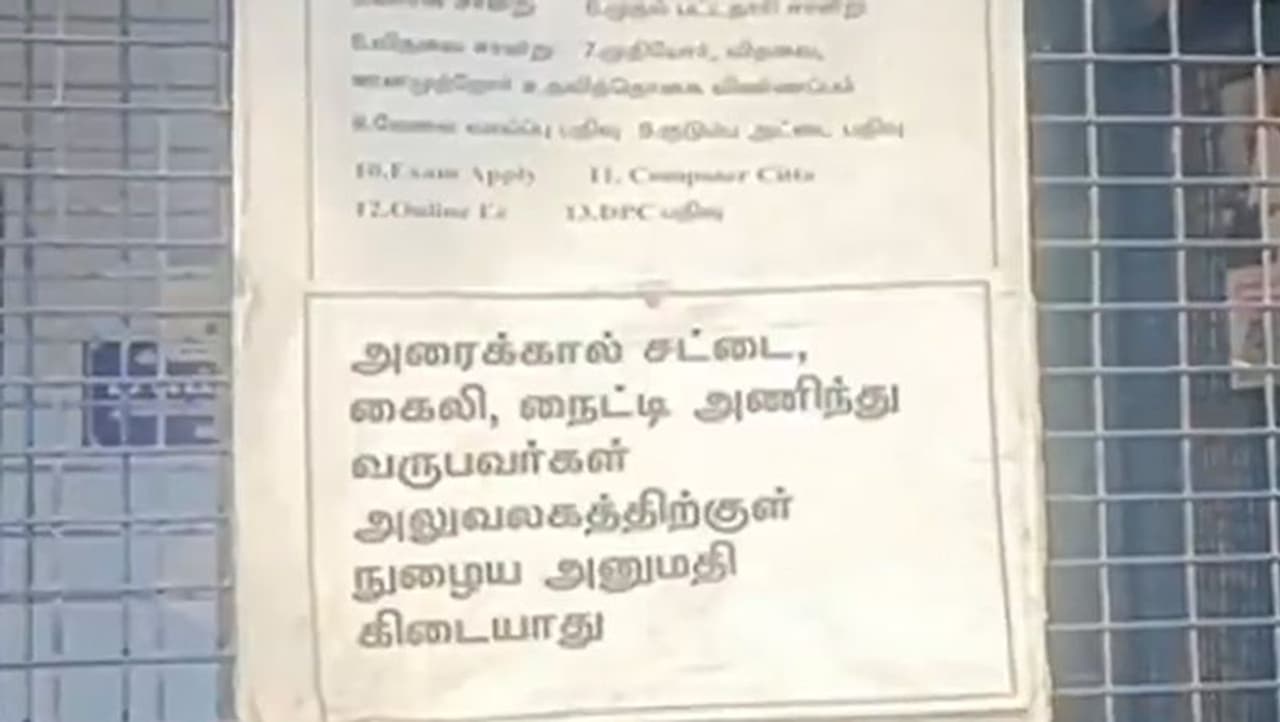 சான்று 6.முதல் பட்டதாரி சான்று
விதவை சான்று 7.முதியோர், விதவை,
ஊனமுற்றோர் உதவித்தொகை விண்ணப்பம்
8.வேலை வாய்ப்பு பதிவு 9.குடும்ப அட்டை பதிவு
10.Exam Apply 11. Computer Citta
12.Online Ec 13.DPC பதிவு
அரைக்கால் சட்டை,
கைலி, நைட்டி அணிந்து
வருபவர்கள்
அலுவலகத்திற்குள்
நுழைய அனுமதி
கிடையாது